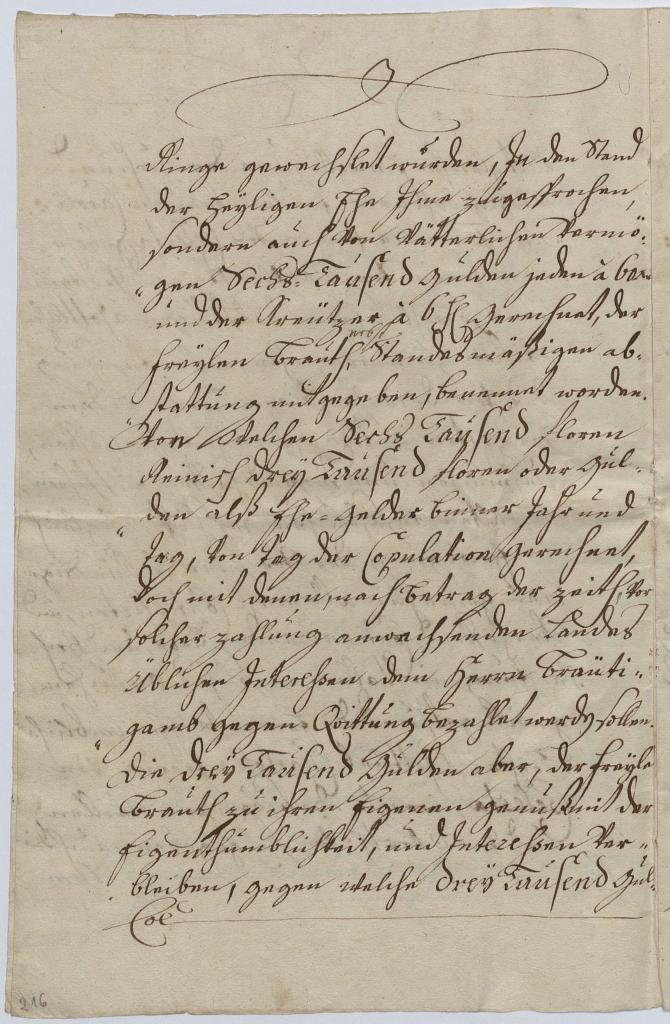 Ringe gewechslet wurden, In den Stand
der heyligen Ehe Ihme zugesprochen,
sondern auch Von Vätterlichen Vermö-
gen Sechs-Tausend gulden jeden à 60 xr
und der Kreützer à 6 hl gerechnet, der
freylen brauth, nebst Standesmäßigen ab-
stattung mitgegeben, benennet worden.
Von Welchen Sechs Tausend floren
Reinisch drey Tausend floren oder gul-
den alß Ehe-gelder binner Jahr und
tag, Von tag der Copulation gerechnet,
doch mit denen, nach betrag der zeith, Vor
solcher zahlung anwachsenden Landes
üblichen Interessen dem Herrn bräuti-
gamb gegen Quittung bezahlet werdn sollen.
Die drey Tausend gulden aber, der freyle
brauth zu ihren Eigenen genuß mit der
Eigenthumblichkeit, und Interessen Ver-
bleiben, gegen welche drey Tausend gul-
216